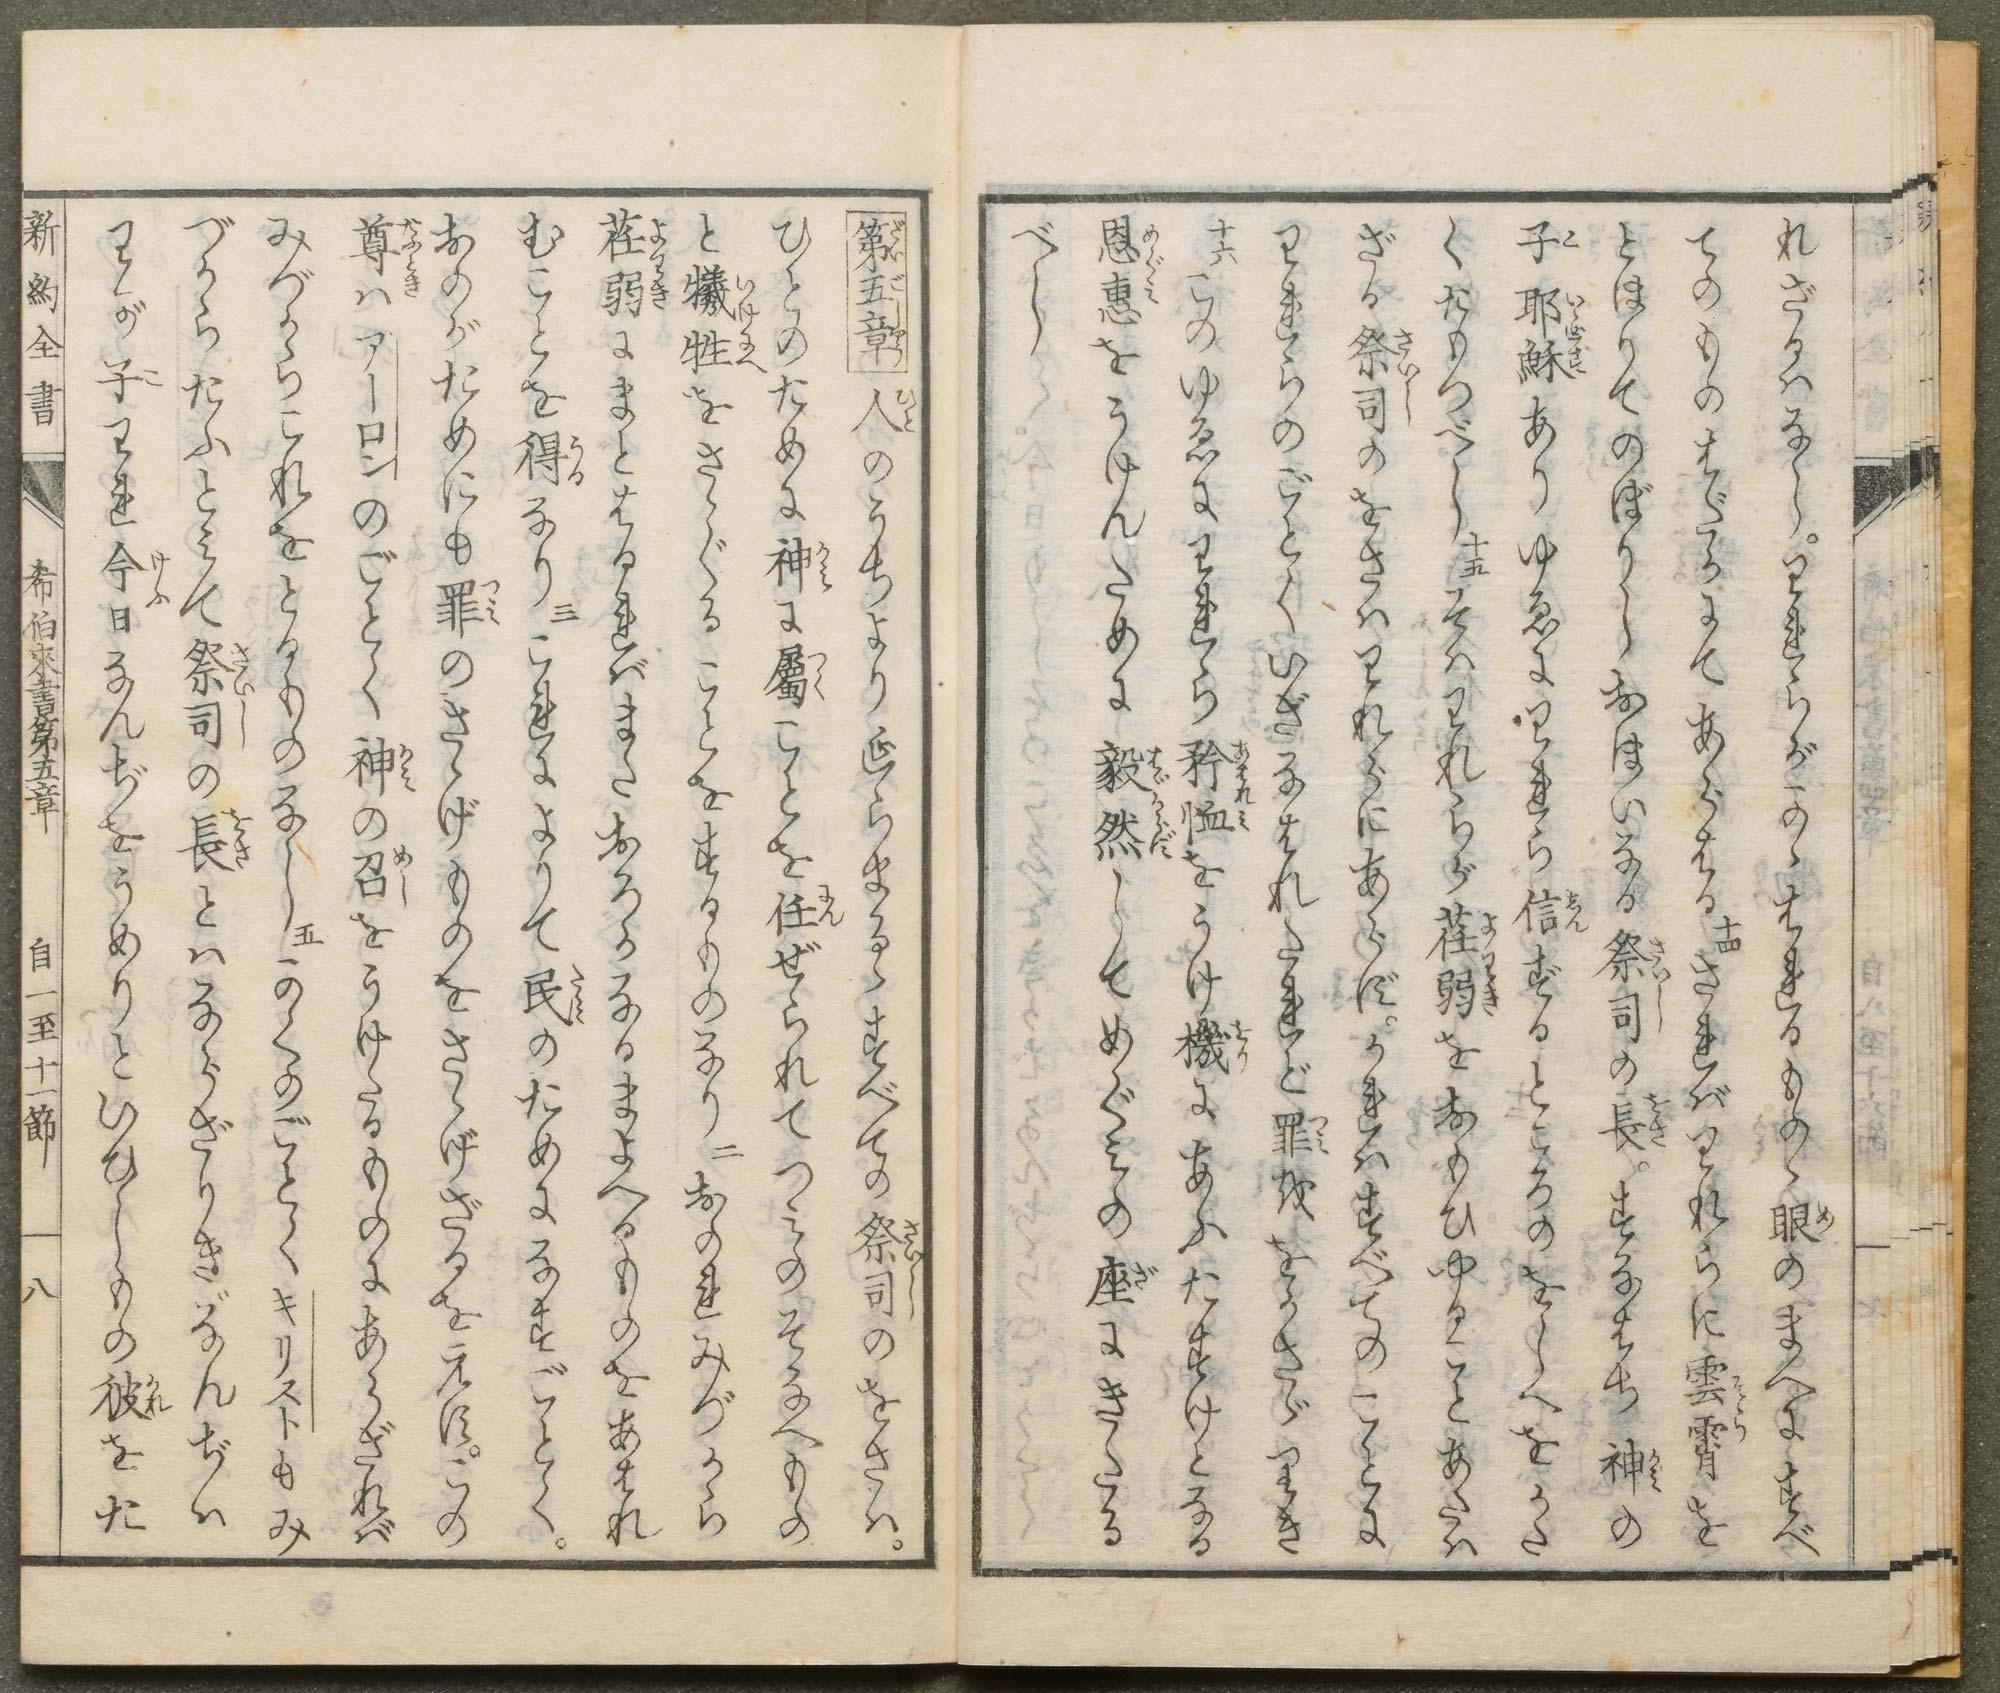 れざるハなし。われらがかゝはれるものゝ眼のまへにすべ
てのものはだかにてあらはる十四されバわれらに雲霄を
とほりてのぼりしおほいなる祭司の長。すなはち神の
子耶穌ありゆゑにわれら信ずるところのをしへをかた
くたもつべし十五そハわれらが荏弱をおもひやることあたハ
ざる祭司のをさハわれらにあらず。かれハすべてのことに
われらのごとくいざなはれたれど罪をゝかさゞりき
十六このゆゑにわれら矜恤をうけ機にあふたすけとなる
恩惠をうけんために毅然してめぐみの座にきたる
べし
第五章 人のうちより選らまるゝすべての祭司のをさハ。
ひとのために神に屬ことを任ぜられてつみのそなへもの
と犧牲をさゝぐることをするものなり二おのれみづから
荏弱にまとはるればまたおろかなるまよへるものをあはれ
むことを得なり三これによりて民のためになすごとく。
おのがためにも罪のさゝげものをさゝげざるを元ず。この
尊ハアーロンのごとく神の召をうけたるものにあらざれバ
みづからこれをとるものなし五かくのごとくキリストもみ
づからたふとみて祭司の長とハならざりきなんぢハ
わが子われ今日なんぢをうめりといひしもの彼をた
新約全書
希伯來書第五章
自一至十一節
八